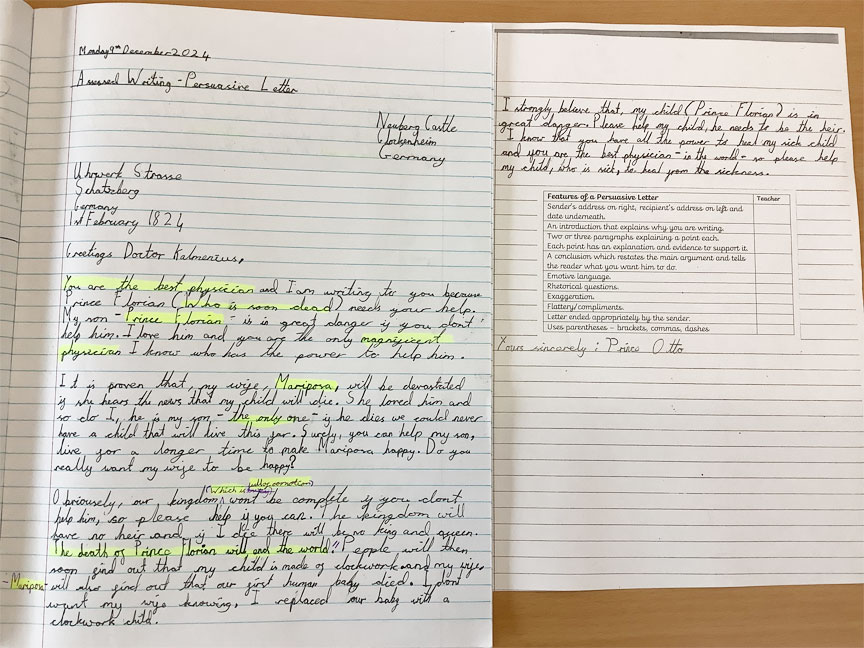 Monday 9th December 2024
Assessed Writing - Persuasive Letter
Neuberg Castle
Glockenheim
Germany
Uhrwerk Strasse
Schatzberg
Germany
1st February 1824
Greetings Doctor Kalmenius,
You are the best physician and I am writing to you because
Prince Florian (Who is soon dead) needs your help.
My son - Prince Florian - is is great danger if you don't
help him. I love him and you are the only magnificent
physician I know who has the power to help him.
It is proven that, my wife, Mariposa, will be devastated
if she hears the news that my child will die. She loved him and
so do I, he is my son - the only one - if he dies we could never
have a child that will live this far. Surely, you can help my son,
live for a longer time to make Mariposa happy. Do you
really want my wife to be happy?
(Which is full of
Obviousely, our kingdom won't be complete if you dont
help him, so please help if you can. The kingdom will
have no heir and if I die there will be no king and queen.
The death of Prince Florian will end the world! People will then
soon find out that my child is made of clockwork and my wife
- Mariposa - will also find out that our first human baby died. I don't
want my wife knowing, I replaced our baby with a
clockwork child.
I strongly believe that, my child (Prince Florian) is in
great danger. Please help my child, he needs to be the heir.
I know that you have all the power to heal my sick child
and you are the best physician - in the world - so please help
my child, who is sick, to heal from the sickness.
Features of a Persuasive Letter Teacher
Sender's address on right, recipient's address on left and
date underneath.
An introduction that explains why you are writing.
Two or three paragraphs explaining a point each.
Each point has an explanation and evidence to support it.
A conclusion which restates the main argument and tells
the reader what you want him to do.
Emotive language.
Rhetorical questions.
Exaggeration.
Flattery/compliments.
Letter ended appropriately by the sender.
Uses parentheses – brackets, commas, dashes
Yours sincerely; Prince Otto